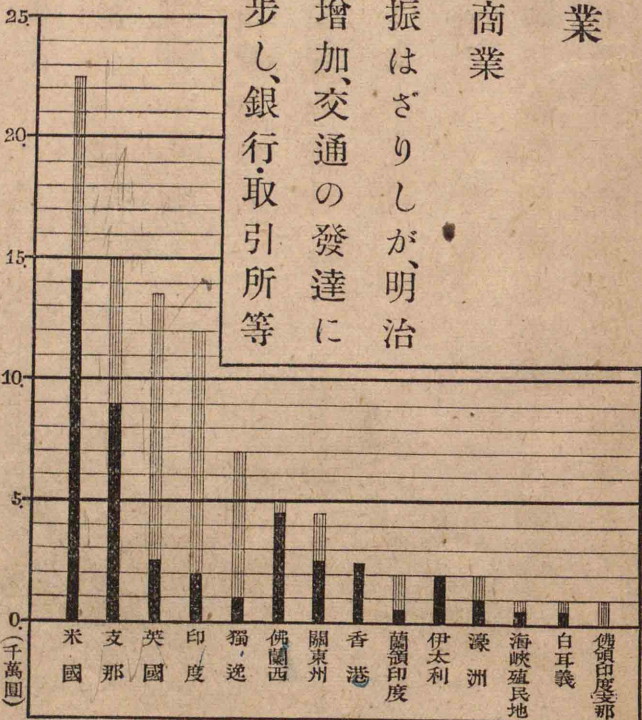 業
商業
振はざりしが、明治
增加、交通の發達に
步し、銀行・取引所等
25
20
15
10
5
0
(千萬圓)
米國
支那
英國
印度
獨逸
佛蘭西
關東州
香港
蘭領印度
伊太利
濠洲
海峽殖民地
白耳義
佛領印度支那